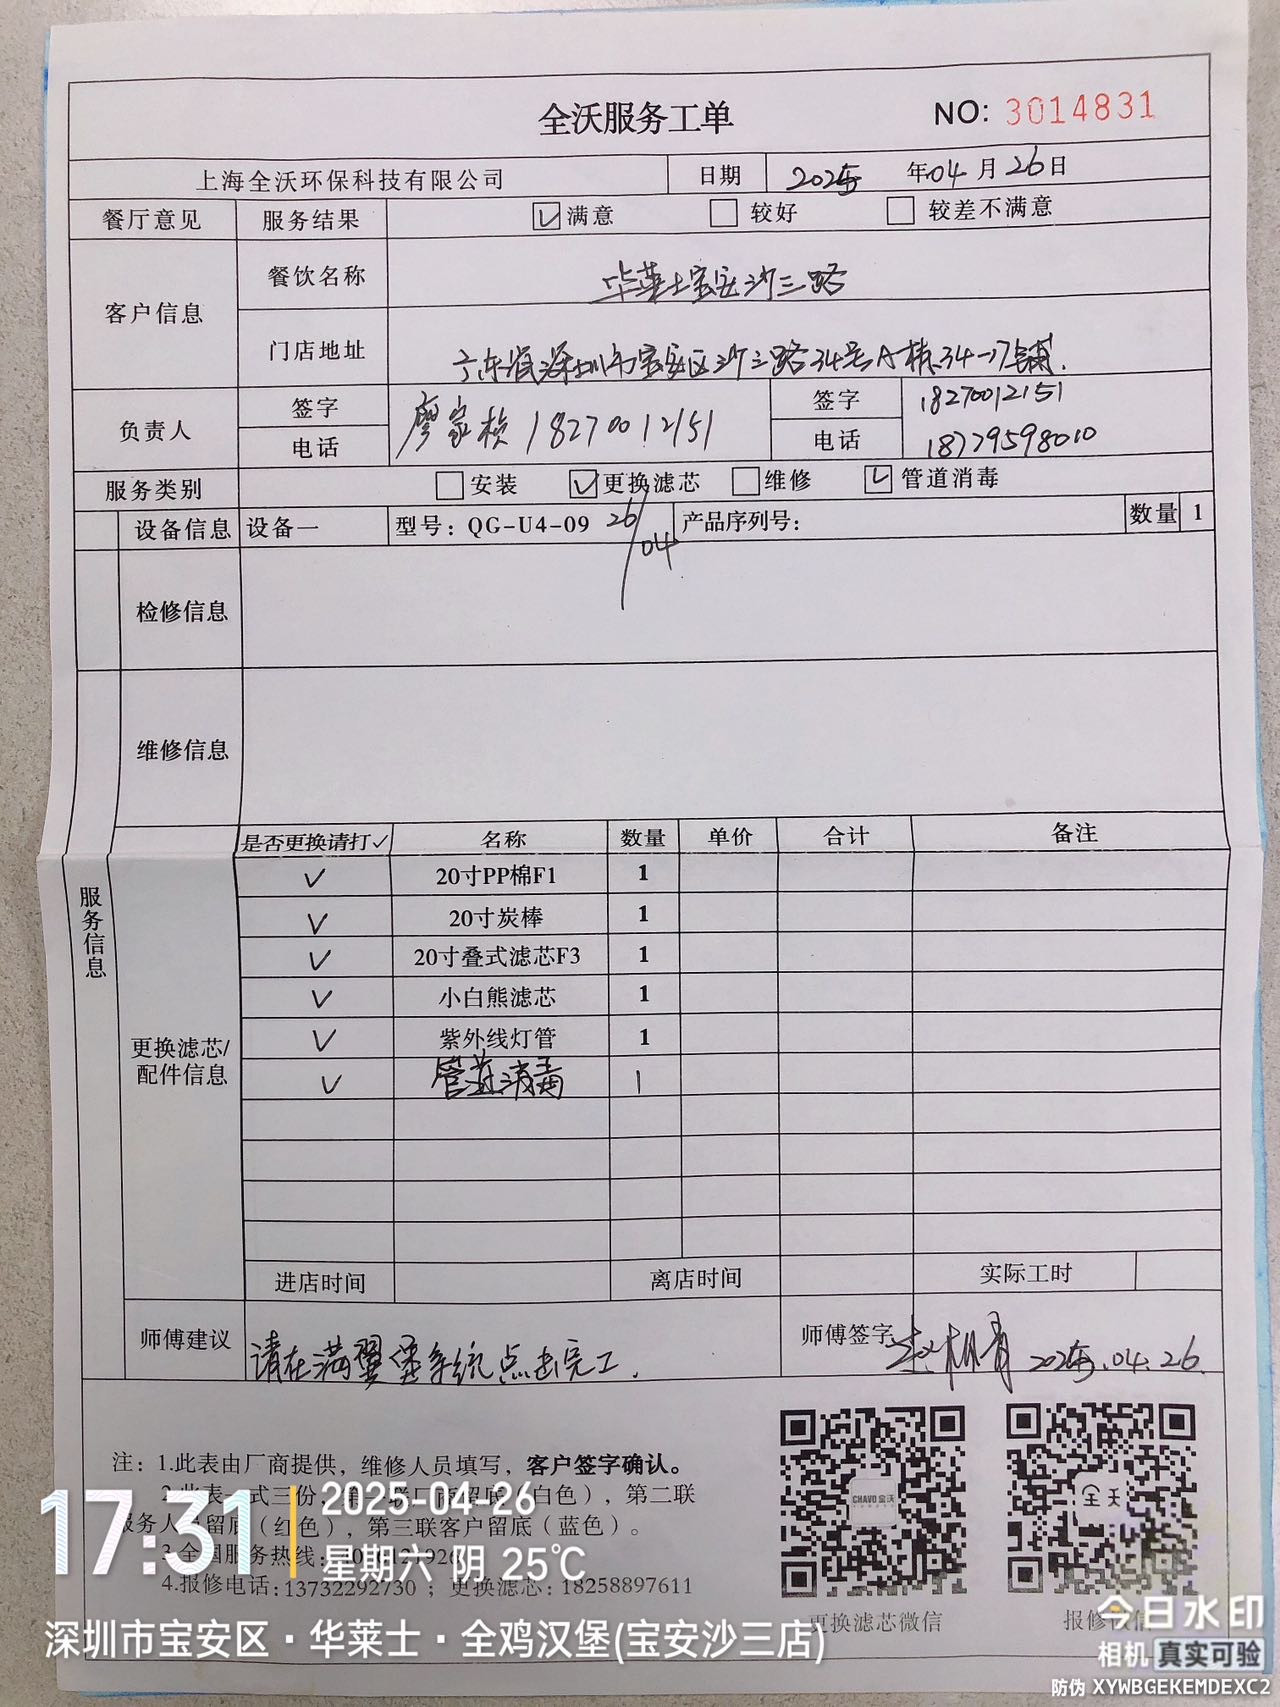 全沃服务工单 NO: 3014831
上海全沃环保科技有限公司 日期 2025年 年04月26日
餐厅意见 服务结果 ☑满意 □较好 □较差不满意
客户信息 餐饮名称 华莱士宝安沙三路
门店地址 广东省深圳市宝安区沙三路34号A栋34-17铺.
负责人 签字 廖家桢 18270012151 签字 18270012151
电话 电话 18779598010
服务类别 □安装 ☑更换滤芯 □维修 ☑管道消毒
设备信息 设备一 型号：QG-U4-09 26/04 产品序列号： 数量 1
检修信息
维修信息
服务信息
是否更换请打✓ 名称 数量 单价 合计 备注
✓ 20寸PP棉F1 1
✓ 20寸炭棒 1
✓ 20寸叠式滤芯F3 1
✓ 小白熊滤芯 1
✓ 紫外线灯管 1
更换滤芯/
配件信息
✓ 管道消毒 1
进店时间 离店时间 实际工时
师傅建议 请在满翼堡系统点击完工. 师傅签字 2025年.04.26
注：1.此表由厂商提供，维修人员填写，客户签字确认。
2.此表一式三份 厂商留底（白色），第二联
服务人员留底（红色），第三联客户留底（蓝色）。
3.全国服务热线：
4.报修电话：13732292730；更换滤芯：18258897611
CHAVO 全沃
全沃
更换滤芯微信 报修微信
17:31
2025-04-26
星期六 阴 25℃
深圳市宝安区·华莱士·全鸡汉堡(宝安沙三店)
今日水印
相机 真实可验
防伪 XYWBGEKEMDEXC2